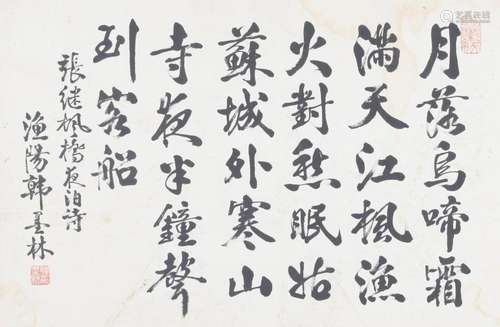 月落烏啼霜
滿天江楓漁
火對愁眠姑
蘇城外寒山
寺夜半鐘聲
到客船
張继楓橋夜泊詩
漁陽韓墨林